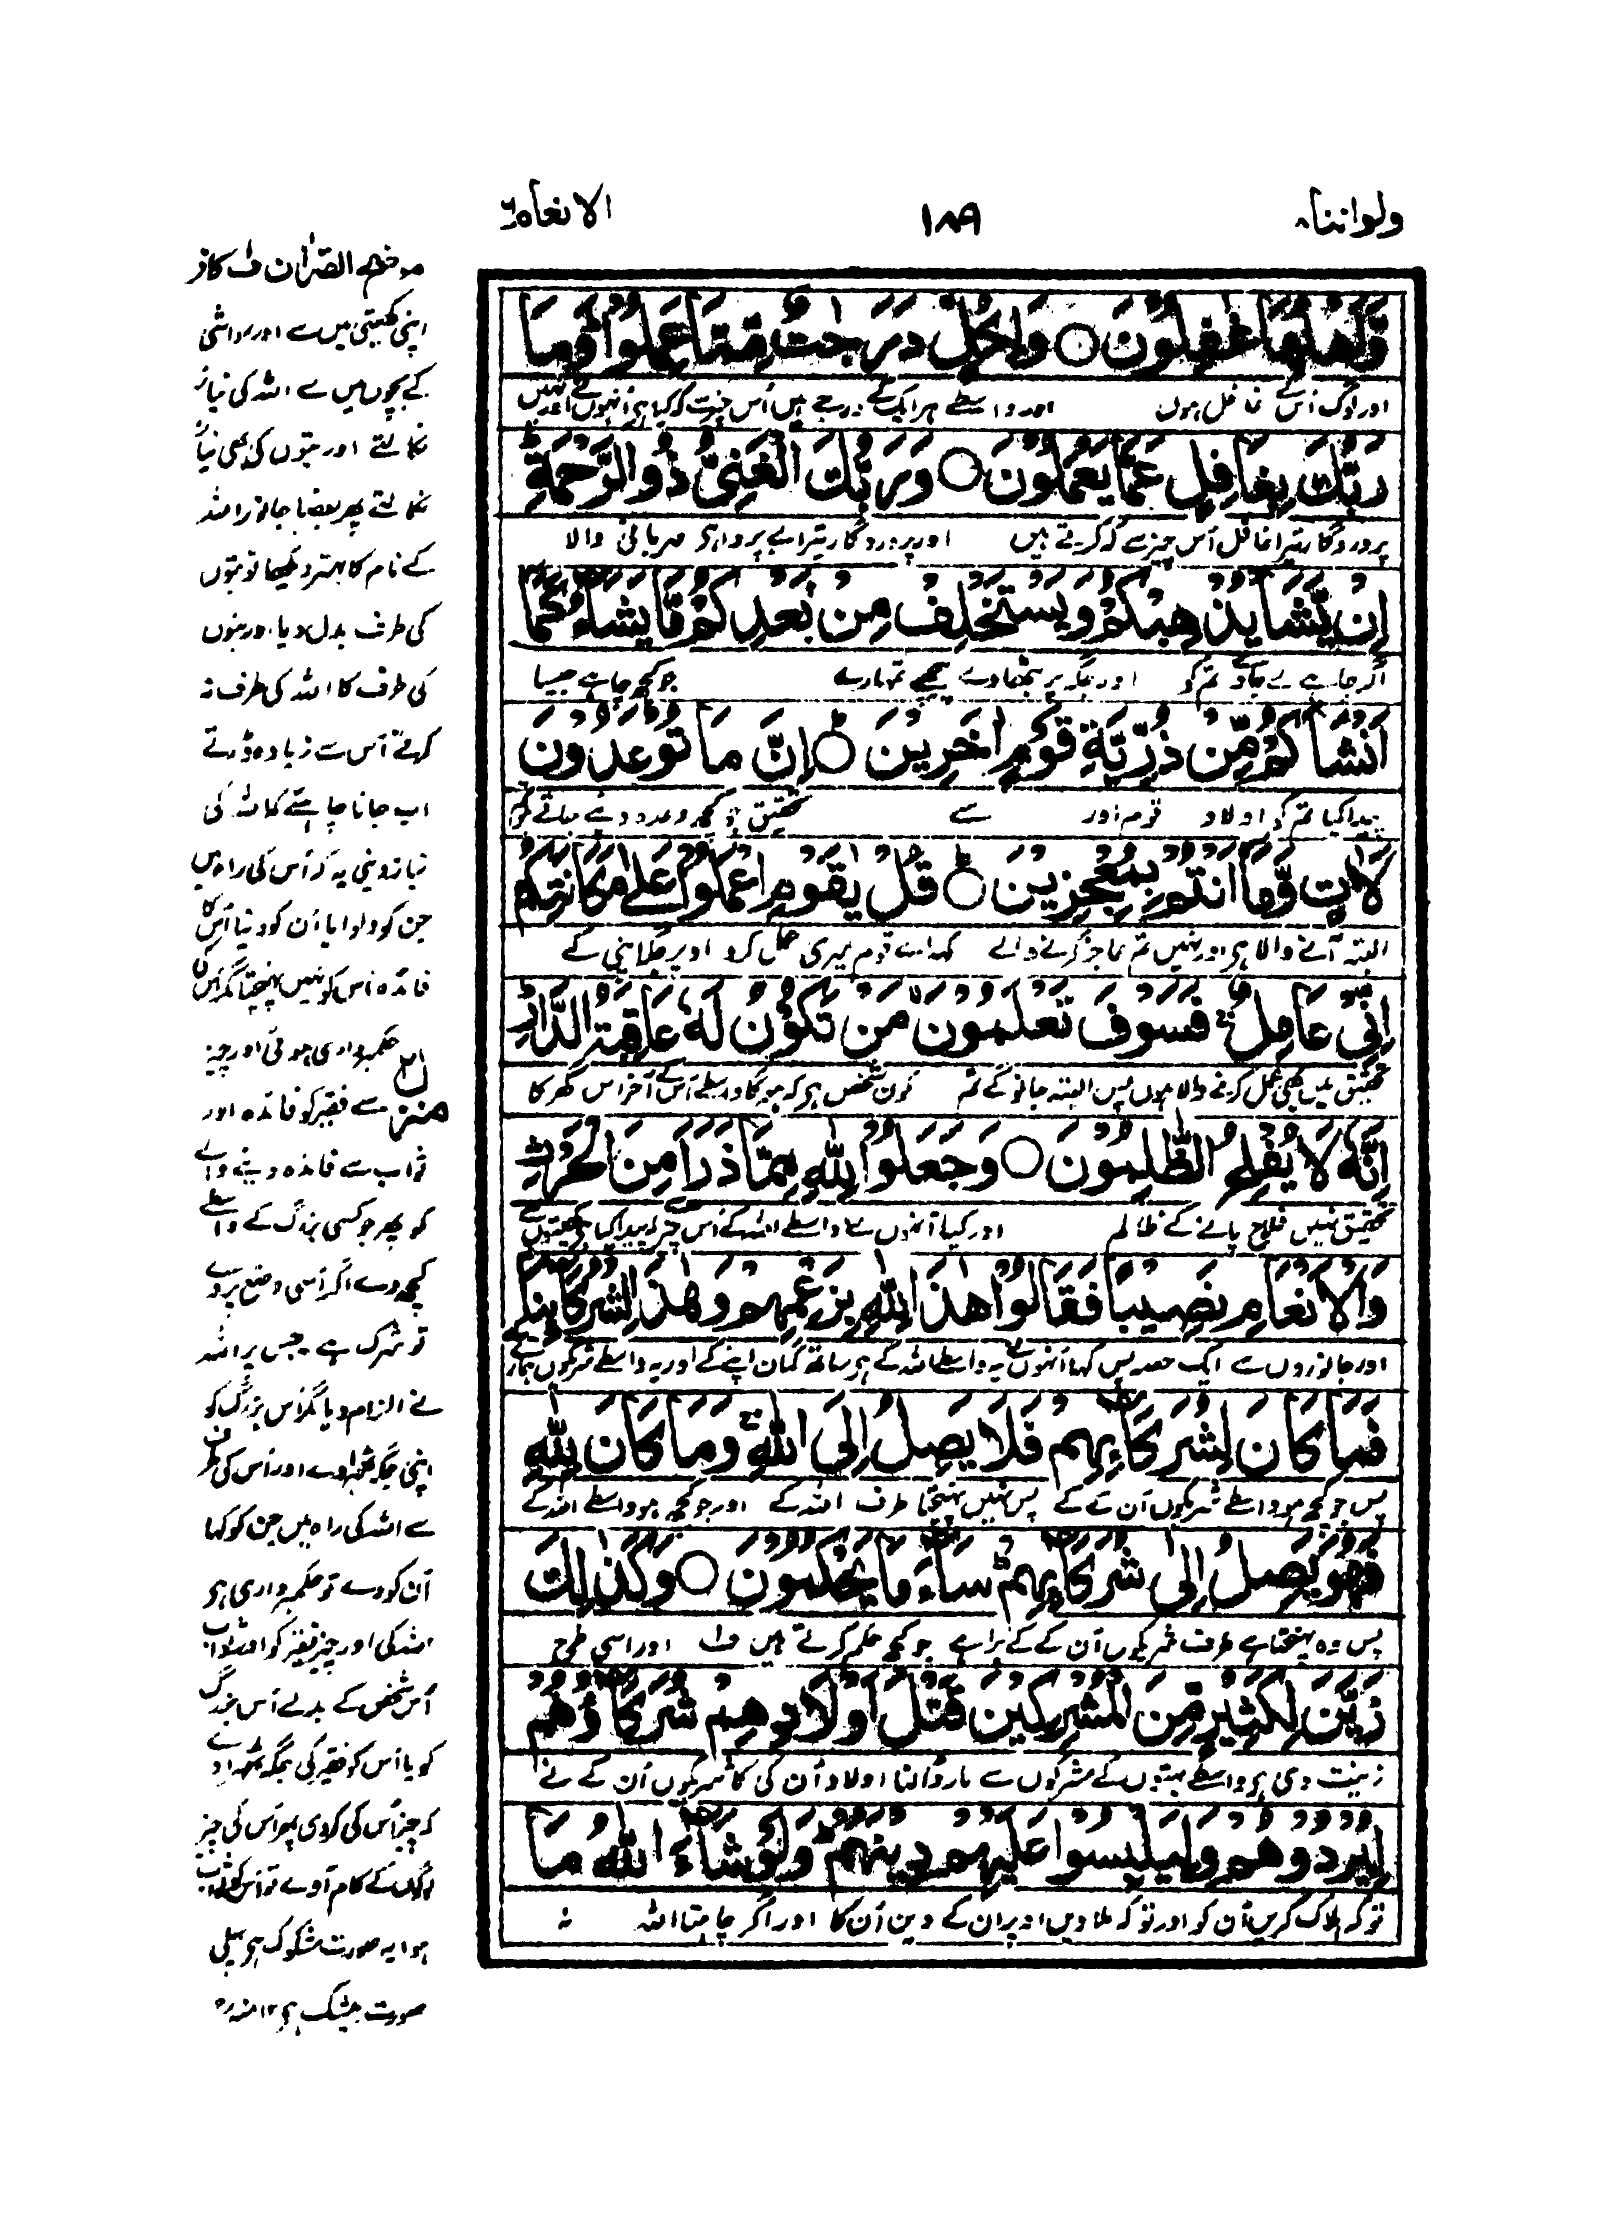 ولواننا ۸
۱۸۹
الانعام ۶
وَّاَهْلُهَا غٰفِلُوْنَ ○ وَلِكُلٍّ دَرَجٰتٌ مِّمَّا عَمِلُوْا ؕ وَمَا
اور لوگ اُس کے غافل ہوں اور واسطے ہر ایک کے درجے ہیں اُس چیز سے کہ کیا ہے انہوں نے اور نہیں
رَبُّكَ بِغَافِلٍ عَمَّا يَعْمَلُوْنَ ○ وَرَبُّكَ الْغَنِىُّ ذُو الرَّحْمَةِ ؕ
پروردگار تیرا غافل اُس چیز سے کہ کرتے ہیں اور پروردگار تیرا بے پرواہ ہی مہربانی والا
اِنْ يَّشَاْ يُذْهِبْكُمْ وَيَسْتَخْلِفْ مِنْۢ بَعْدِكُمْ مَّا يَشَآءُ كَمَآ
اگر چاہے لے جاوے تم کو اور جگہ پر بٹھاوے پیچھے تمہارے جو کچھ چاہے جیسا
اَنْشَاَكُمْ مِّنْ ذُرِّيَّةِ قَوْمٍ اٰخَرِيْنَ ○ؕ اِنَّ مَا تُوْعَدُوْنَ
پیدا کیا تم کو اولاد قوم اور سے تحقیق جو کچھ وعدہ دئے جاتے ہو تم
لَاٰتٍ وَّمَآ اَنْتُمْ بِمُعْجِزِيْنَ ○ؕ قُلْ يٰقَوْمِ اعْمَلُوْا عَلٰى مَكَانَتِكُمْ
البتہ آنے والا ہی اور نہیں تم عاجز کرنے والے کہہ اے قوم میری عمل کرو اوپر جگہ اپنی کے
اِنِّىْ عَامِلٌ ۚ فَسَوْفَ تَعْلَمُوْنَ مَنْ تَكُوْنُ لَهٗ عَاقِبَةُ الدَّارِ ؕ
تحقیق میں بھی عمل کرنے والا ہوں پس البتہ جانو گے تم کون شخص ہی کہ ہوگا واسطے اُس کے آخر اس گھر کا
اِنَّهٗ لَا يُفْلِحُ الظّٰلِمُوْنَ ○ وَجَعَلُوْا لِلّٰهِ مِمَّا ذَرَاَ مِنَ الْحَرْثِ
تحقیق نہیں فلاح پانے کے ظالم اور کیا اُنہوں نے واسطے اللہ کے اُس چیز سے کہ پیدا کیا ہی کھیتوں سے
وَالْاَنْعَامِ نَصِيْبًا فَقَالُوْا هٰذَا لِلّٰهِ بِزَعْمِهِمْ وَهٰذَا لِشُرَكَآئِنَا ۚ
اور جانوروں سے ایک حصہ پس کہا اُنہوں نے یہ واسطے اللہ کے ہی ساتھ گمان اپنے کے اور یہ واسطے شریکوں ہمارے کے
فَمَا كَانَ لِشُرَكَآئِهِمْ فَلَا يَصِلُ اِلَى اللّٰهِ ۚ وَمَا كَانَ لِلّٰهِ
پس جو کچھ ہو واسطے شریکوں اُن کے کے پس نہیں پہنچتا طرف اللہ کے اور جو کچھ ہو واسطے اللہ کے
فَهُوَ يَصِلُ اِلٰى شُرَكَآئِهِمْ ؕ سَآءَ مَا يَحْكُمُوْنَ ○ وَكَذٰلِكَ
پس وہ پہنچتا ہے طرف شریکوں اُن کے کے برا ہے جو کچھ حکم کرتے ہیں ف۱ اور اسی طرح
زَيَّنَ لِكَثِيْرٍ مِّنَ الْمُشْرِكِيْنَ قَتْلَ اَوْلَادِهِمْ شُرَكَآؤُهُمْ
زینت دی ہی واسطے بہتوں کے مشرکوں سے مار ڈالنا اولاد اُن کی کا شریکوں اُن کے نے
لِيُرْدُوْهُمْ وَلِيَلْبِسُوْا عَلَيْهِمْ دِيْنَهُمْ ؕ وَلَوْ شَآءَ اللّٰهُ مَا
تو کہ ہلاک کریں اُن کو اور تو کہ ملا دیں اوپر ان کے دین اُن کا اور اگر چاہتا اللہ نہ
موضح القرآن ف۱ کافر
اپنی کھیتی میں سے اور مواشی
کے بچوں میں سے اللہ کی نیاز
نکالتے اور بتوں کی بھی نیاز
نکالتے پھر بعضا جانور اللہ
کے نام کا بہتر دیکھا تو بتوں
کی طرف بدل دیا اور بتوں
کی طرف کا اللہ کی طرف نہ
کرتے اُس سے زیادہ ڈرتے
اب جانا چاہئے کہ اللہ کی
نیاز دینی یہ کہ اُس کی راہ میں
جن کو دلوایا اُن کو دینا اُس کا
فائدہ اُس کو نہیں پہنچتا مگر اُس کی
حکمبرداری ہوئی اور چیز
سے فقیر کو فائدہ اور
ثواب سے فائدہ دینے والے
کو پھر جو کسی بزرگ کے واسطے
کچھ دے اگر اُسی وضع پر دے
تو شرک ہے جس پر اللہ
نے الزام دیا مگر اُس بزرگ کو
اپنی جگہ ٹھہراوے اور اُس کی طرف
سے اللہ کی راہ میں جن کو کہا
اُن کو دے تو حکمبرداری ہی
اللہ کی اور چیز فقیر کو اور ثواب
اُس شخص کے بدلے اُس بزرگ
کو یا اُس کو فقیر کی جگہ ٹھہرادے
کہ چیز اُس کی کردی پھر اُس کی چیز
لوگوں کے کام آوے تو اُس کو ثواب
ہوا یہ صورت مشکوک ہی پہلی
صورت بیشک ہی ۱۲ منہ رح